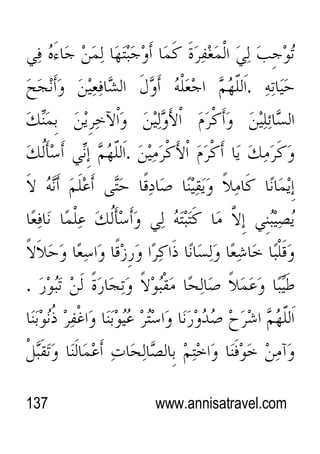 تُوْجِبَ لِيَ الْمَغْفِرَةَ كَمَا أَوْجَبْتَهَا لِمَنْ جَاءَهُ فِي
حَيَاتِهِ .اَللّٰهُمَّ اجْعَلْهُ أَوَّلَ الشَّافِعِيْنَ وَأَنْجَحَ
السَّائِلِيْنَ وَأَكْرَمَ الْأَوَّلِيْنَ وَاْلآخِرِيْنَ بِمَنِّكَ
وَكَرَمِكَ يَا أَكْرَمَ الْأَكْرَمِيْنَ .اَللّٰهُمَّ إِنِّي أَسْأَلُكَ
إِيْمَانًا كَامِلاً وَيَقِيْنًا صَادِقًا حَتَّى أَعْلَمَ أَنَّهُ لاَ
يُصِيْبُنِي إِلاَّ مَا كَتَبْتَهُ لِي وَأَسْأَلُكَ عِلْمًا نَافِعًا
وَقَلْبًا خَاشِعًا وَلِسَانًا ذَاكِرًا وَرِزْقًا وَاسِعًا وَحَلاَلاً
طَيِّبًا وَعَمَلاً صَالِحًا مَقْبُوْلاً وَتِجَارَةً لَنْ تَبُوْرَ .
اَللّٰهُمَّ اشْرَحْ صُدُوْرَنَا وَاسْتُرْ عُيُوْبَنَا وَاغْفِرْ ذُنُوْبَنَا
وَآمِنْ خَوْفَنَا وَاخْتِمْ بِالصَّالِحَاتِ أَعْمَالَنَا وَتَقَبَّلْ
137 www.annisatravel.com